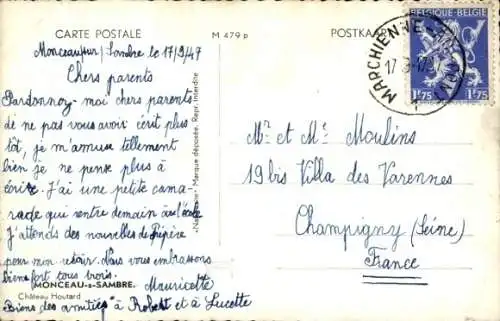 CARTE POSTALE
M 479 p
POSTKAART
BELGIQUE-BELGIE
1F75 1F75
MARCHIENNE-AU-PONT
17
Monceausur/Sambre le 17/9/47
Chers parents
Pardonnez-moi chers parents
de ne pas vous avoir écrit plus
tôt, je m'amuse tellement
bien je ne pense plus à
écrire. J'ai une petite cama-
rade qui rentre demain à l'école
J'attends des nouvelles de Pépère
pour mon retour. Nous vous embrassons
bien fort tous trois.
Mauricette
Biens des amitiés à Robert et à Lucette
MONCEAU-s-SAMBRE.
Château Houtard
Marque déposée. Repr. interdite
Mr et Me Moulins
19 bis Villa des Varennes
Champigny (Seine)
France